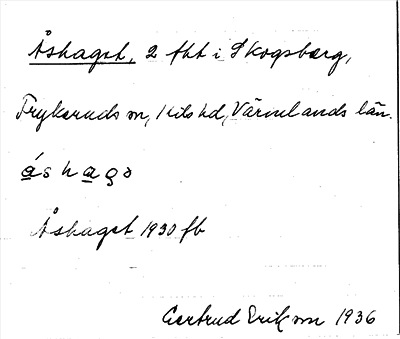 Åshaget, 2 fht i Skogsberg,
Frykeruds sn, Kils hd, Värmlands län.
á̱s h a̱ g ə
Åshaget 1930 fb
Gertrud Eriksson 1936